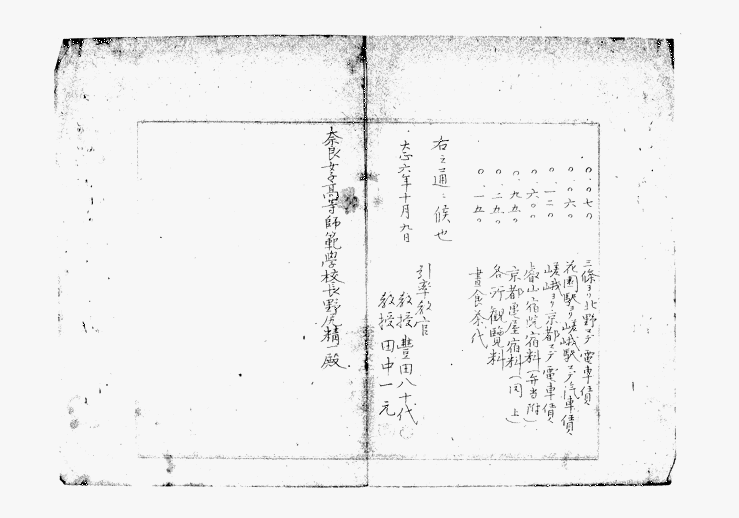 〇.〇七〇 三條ヨリ北野マデ電車賃
〇.〇六〇 花園駅ヨリ嵯峨駅マデ汽車賃
〇.一二〇 嵯峨ヨリ京都マデ電車賃
〇.六〇〇 叡山宿院宿料(弁当附)
〇.九五〇 京都亀屋宿料(同上)
〇.二五〇 各所観覧料
〇.一五〇 晝食茶代
右之通ニ候也
大正六年十月九日
引率教官
教授 豊田八十代
教授 田中一元
奈良女子高等師範學校長野尻精一殿